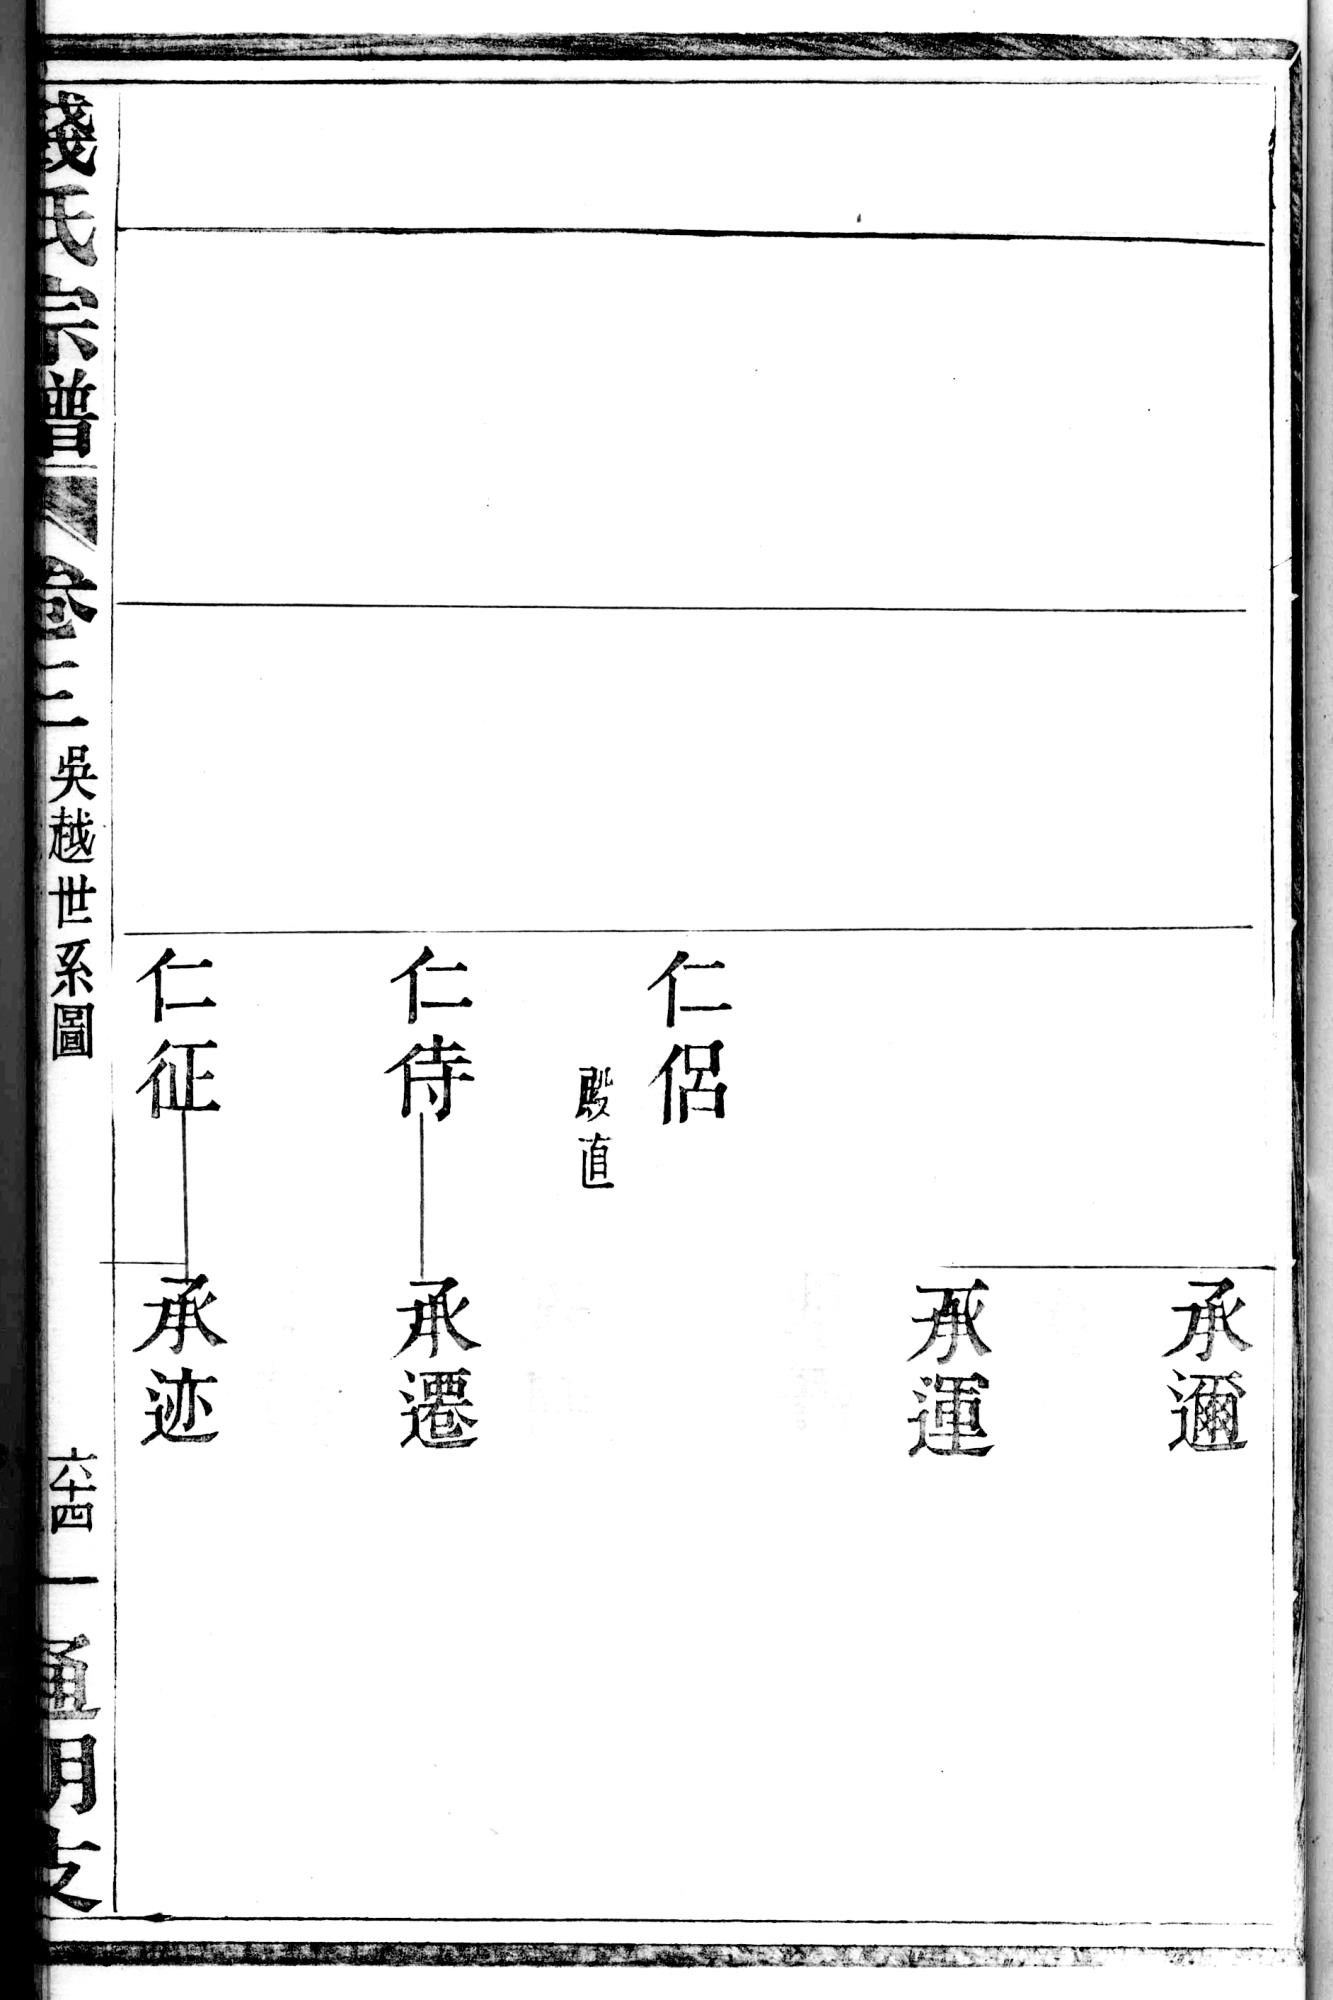 承邇
承運
仁侶
殿直
仁侍
承遷
仁征
承迹
錢氏宗譜 卷三 吳越世系圖 六十四 一 通明支